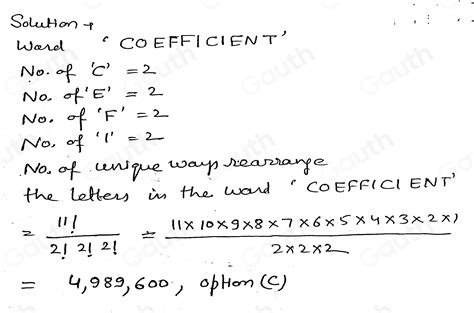 Solution →
Word 'COEFFICIENT'
No. of 'C' = 2
No. of 'E' = 2
No. of 'F' = 2
No. of 'I' = 2
No. of unique ways rearrange
the letters in the word 'COEFFICIENT'
= 11! / 2! 2! 2! = 11×10×9×8×7×6×5×4×3×2×1 / 2×2×2
= 4,989,600, option (C)
Gauth